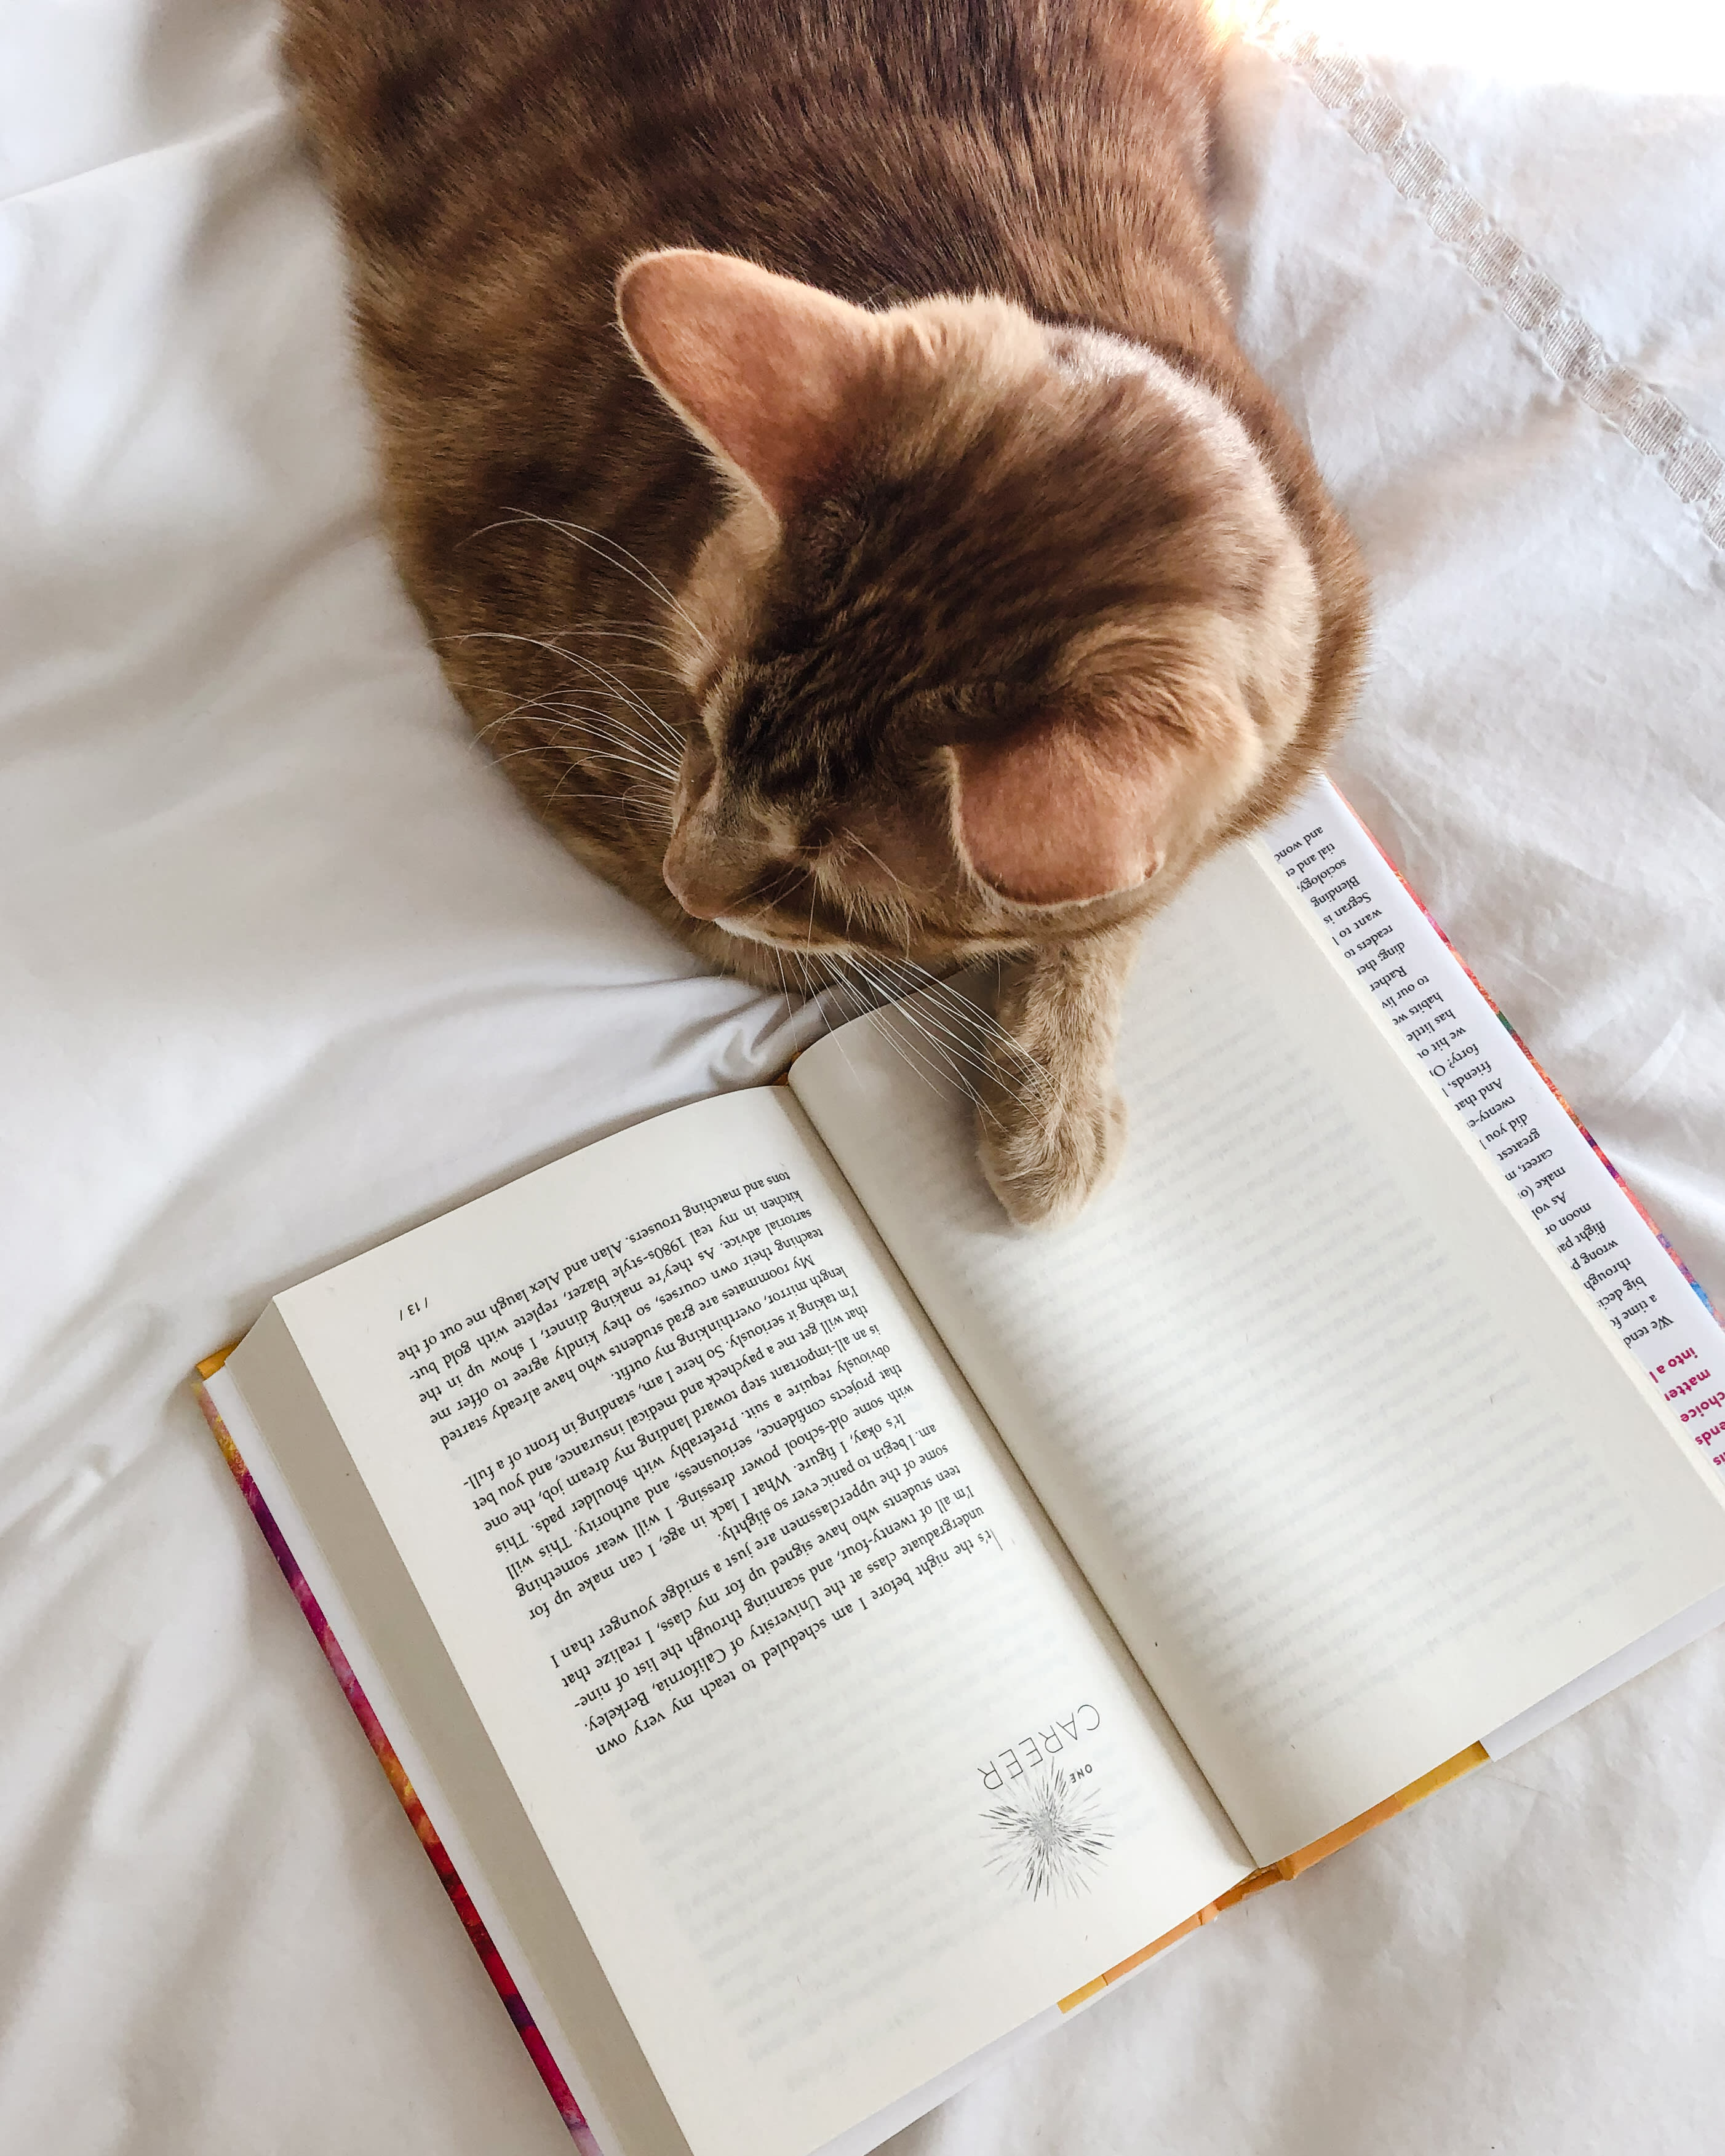 ONE
CAREER
It's the night before I am scheduled to teach my very own
undergraduate class at the University of California, Berkeley.
I'm all of twenty-four, and scanning through the list of nine-
teen students who have signed up for my class, I realize that
some of the upperclassmen are just a smidge younger than I
am. I begin to panic ever so slightly.
It's okay, I figure. What I lack in age, I can make up for
with some old-school power dressing. I will wear something
that projects confidence, seriousness, and authority. This will
obviously require a suit. Preferably with shoulder pads. This
is an all-important step toward landing my dream job, the one
that will get me a paycheck and medical insurance, and you bet
I'm taking it seriously. So here I am, standing in front of a full-
length mirror, overthinking my outfit.
My roommates are grad students who have already started
teaching their own courses, so they kindly agree to offer me
sartorial advice. As they're making dinner, I show up in the
kitchen in my teal 1980s-style blazer, replete with gold but-
tons and matching trousers. Alan and Alex laugh me out of the
/ 13 /
is
ends
choice
matter
into a l
We tend
a time fo
big decis
through
wrong p
flight pa
moon or
As vol
make (o
career, m
greatest
did you l
twenty-e
And that
friends, l
forty? O
we hit o
has little
habits we
to our liv
Rather
ding; ther
readers to
want to l
Segran is
Blending
sociology,
tial and e
and wond